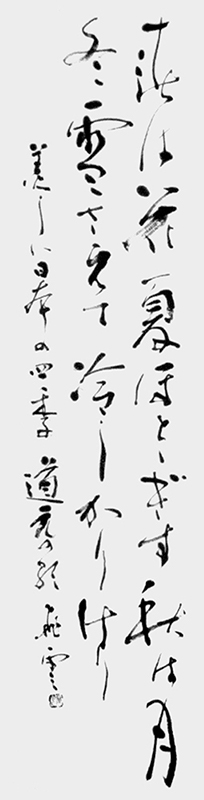 春は花夏ほとゝぎす秋は月
冬雪さえて冷しかりけり
美しい日本の四季 道元の歌